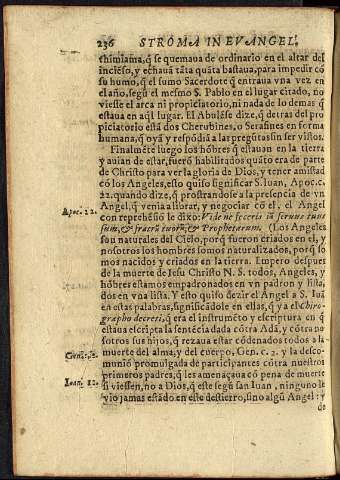 236 STROMA IN EVANGEL.
thimiama, q̃ se quemaua de ordinario en el altar del
incieſo, y echauã tãta quãta bastaua, para impedir cõ
su humo, q̃ el sumo Sacerdote q̃ entraua vna vez en
el año, segũ el mesmo S. Pablo en el lugar citado, no
viesse el arca ni propiciatorio, ni nada de lo demas q̃
estaua en aq̃l lugar. El Abulẽse dize, q̃ detras del pro
piciatorio estã dos Cherubines, o Serafines en forma
humana, q̃ oyã y respõdiã a las pregũtas sin ser vistos.
Finalmẽte luego los hõbres q̃ estauan en la tierra
y auian de estar, fuerõ habilitados quãto era de parte
de Christo para ver la gloria de Dios, y tener amistad
cõ los Angeles, esto quiso significar S. Iuan, Apoc. c.
Apoc. 22.
22. quando dize, q̃ prostrandose a la presencia de vn
Angel, q̃ venia a llorar, y negociar cõ el, el Angel
con reprehẽsiõ le dixo: Vide ne feceris iã seruus tuus
sum, & fratrũ tuorũ, & Prophetarum. (Los Angeles
son naturales del Cielo, porq̃ fueron criados en el, y
nosotros los hombres somos naturalizados, porq̃ so
mos nacidos y criados en la tierra. Empero despues
de la muerte de Iesu Christo N. S. todos, Angeles, y
hõbres estamos empadronados en vn padron y lista,
dos en vna lista. Y esto quiso dezir el Angel a S. Iuã
en estas palabras, significãdole en ellas, q̃ ya el Chiro-
grapho decreti, q̃ era el instrumẽto y escriptura en q̃
estaua escripta la sentẽcia dada cõtra Adã, y cõtra no
sotros sus hijos, q̃ rezaua estar cõdenados todos a la
muerte del alma, y del cuerpo, Gen. c. 2. y la desco-
muniõ promulgada de participantes cõtra nuestros
primeros padres, q̃ les amenaçaua cõ pena de muerte
Ioan. 12.
si viessen, no a Dios, q̃ este segũ san Iuan, ninguno le
vio jamas estãdo en este destierro, sino algũ Angel: y
de